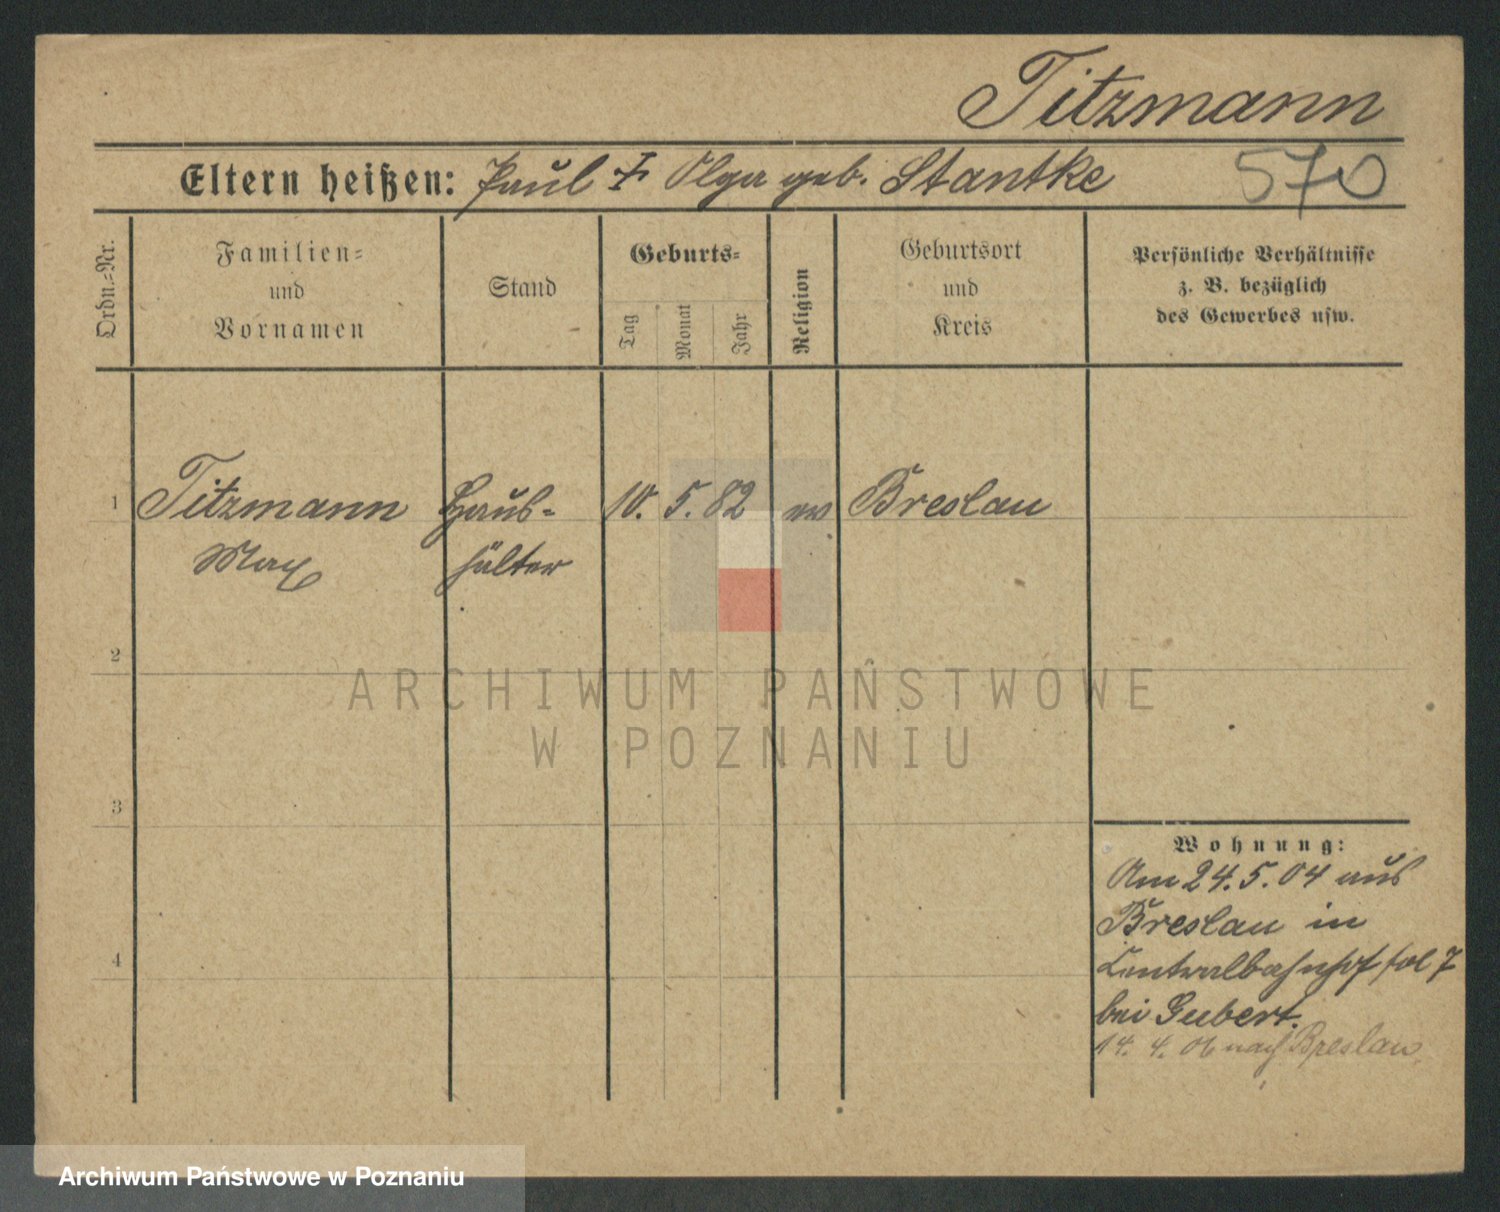 Titzmann
Eltern heißen: Paul ☩ Olga geb. Stantke 570
Ordn.-Nr.
Familien-
und
Vornamen
Stand
Geburts-
Tag
Monat
Jahr
Religion
Geburtsort
und
Kreis
Persönliche Verhältnisse
z. B. bezüglich
des Gewerbes usw.
1 Titzmann Haus- 10. 5. 82 ev Breslau
Max hälter
2
ARCHIWUM PAŃSTWOWE
W POZNANIU
3
Wohnung:
Am 24.5.04 aus
Breslau in
4
Centralbahnhof 7
bei Gubert.
14. 4. 06 nach Breslau
Archiwum Państwowe w Poznaniu